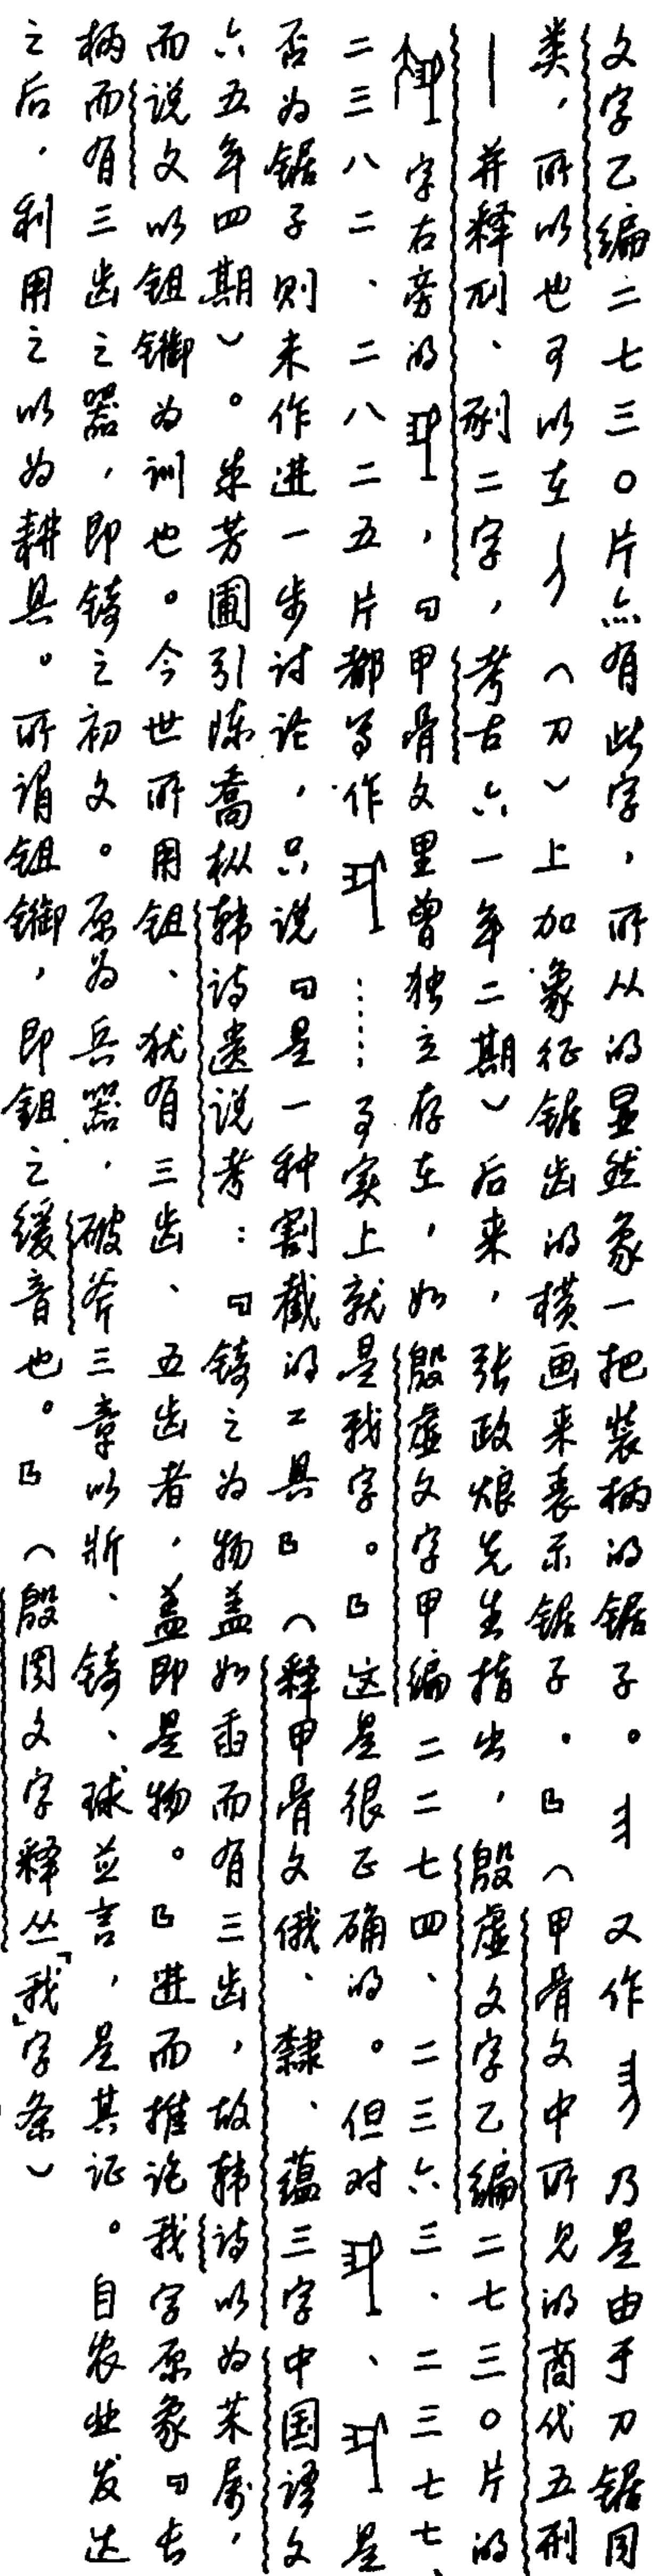 文字乙编二七三〇片点有此字，所从的显然象一把装柄的锯子。又作乃是由于刀锯同
类，所以也可以在（刀）上加象征锯齿的横画来表示锯子。」（甲骨文中所见的商代五刑
——并释刖、劓二字，考古六一年二期）后来，张政烺先生指出，殷虚文字乙编二七三〇片的
字右旁的，「甲骨文里曾独立存在，如殷虚文字甲编二二七四、二三六三、二三七七、
二三八二、二八二五片都写作……事实上就是我字。」这是很正确的。但对、是
否为锯子则未作进一步讨论，只说「是一种割截的工具」（释甲骨文俄、隸、蕴三字中国语文
六五年四期）。朱芳圃引陈乔枞韩诗遗说考：「锜之为物盖如臿而有三齿，故韩诗以为茉属，
而说文以鉏鋙为训也。今世所用鉏、犹有三齿、五齿者，盖即是物。」进而推论我字原象「长
柄而有三齿之器，即锜之初文。原为兵器，破斧三章以斨、锜、銶並言，是其证。自农业发达
之后，利用之以为耕具。所谓鉏鋙，即鉏之缓音也。」（殷周文字释丛「我」字条）